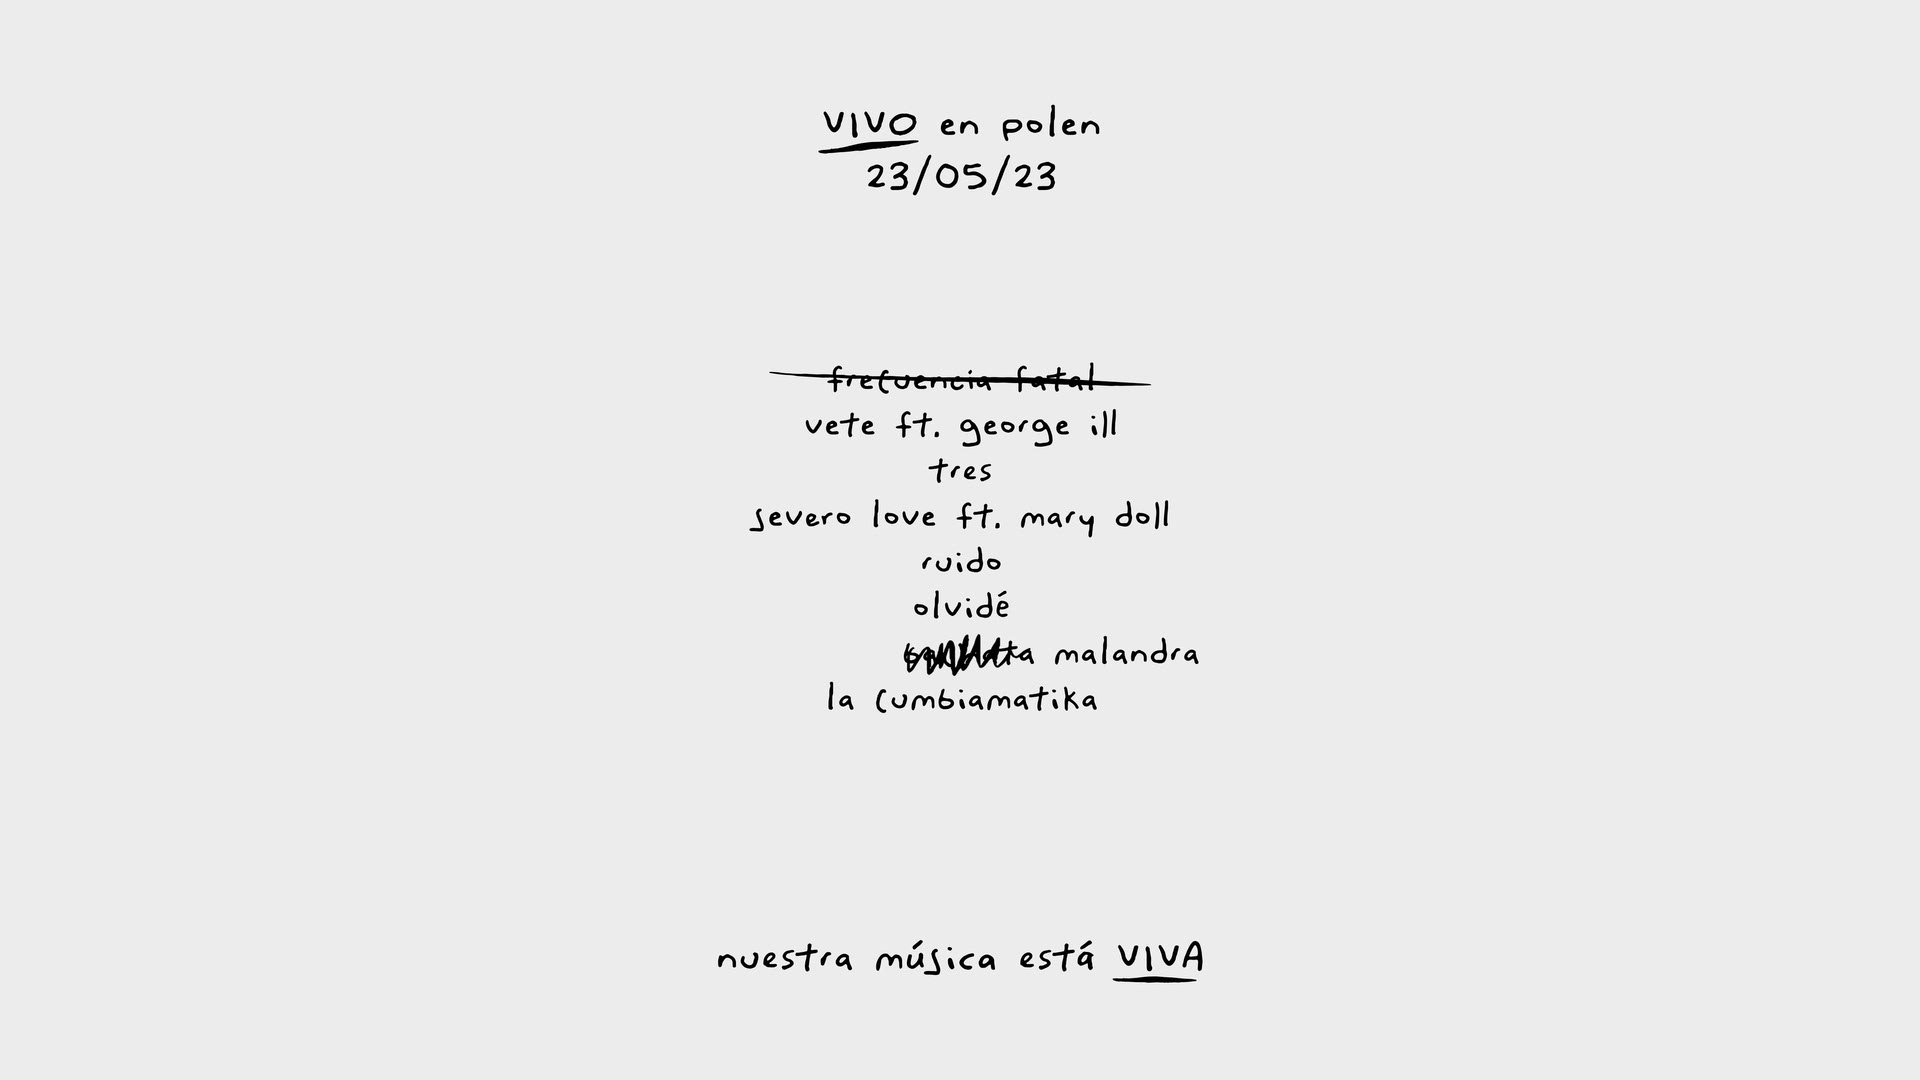 VIVO en polen
23/05/23
frecuencia fatal
vete ft. george ill
tres
severo love ft. mary doll
ruido
olvidé
malandra
la cumbiamatika
nuestra música está VIVA